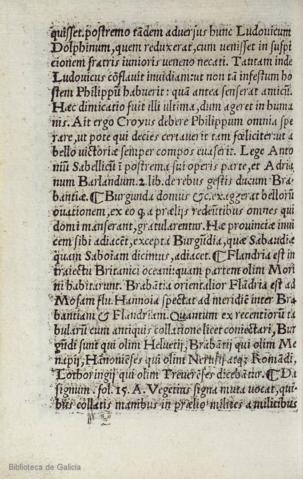 quisset. postremo tãdem adversus hunc Ludovicum
Dolphinum, quem reduxerat, cum venisset in suspi
cionem fratris iunioris veneno necati. Tautam inde
Ludovicus cõflavit invidiam: ut non tã infestum ho
stem Philippũ habuerit: quã antea senserat amicũ.
Hæc dimicatio fuit illi ultima, dum ageret in huma
nis. Ait ergo Croyus debere Philippum omnia spe
rare, ut pote qui decies certaverit tam fœliciter: ut a
bello victoriæ semper compos evaserit. Lege Anto
niũ Sabellicũ ĩ postrema sui operis parte, et Adria
num Barlandum. 2. lib. de rebus gestis ducum Bra-
bantiæ. ¶ Burgunda domus &c. exaggerat bellorũ
ovationem, ex eo q̃ a prælijs redeũtibus omnes qui
domi manserant, gratularentur. Hæ provinciæ invi
cem sibi adiacẽt, excepta Burgũdia, quæ Sabaudiæ
quam Saboiam dicimus, adiacet. ¶ Flandria est in
traiectu Britanici oceani: quam partem olim Mori
ni habitarunt. Brabãtia orientalior Flãdria est ad
Mosam flu. Hannoia spectat ad meridiẽ inter Bra
bantiam & Flandriam. Quantum ex recentiorũ ta
bularũ cum antiquis collatione licet coniectari, Bur
gũdi sunt qui olim Helvetij, Brabãtij qui olim Me
napij, Hãnoniẽses qui olim Nervij atq; Romãdi,
Lothoringij qui olim Treverẽses dicebãtur. ¶ Da
signum: fol. 15. A. Vegetius signa muta vocat, qui-
bus collatis manibus in prælio milites a militibus
Biblioteca de Galicia